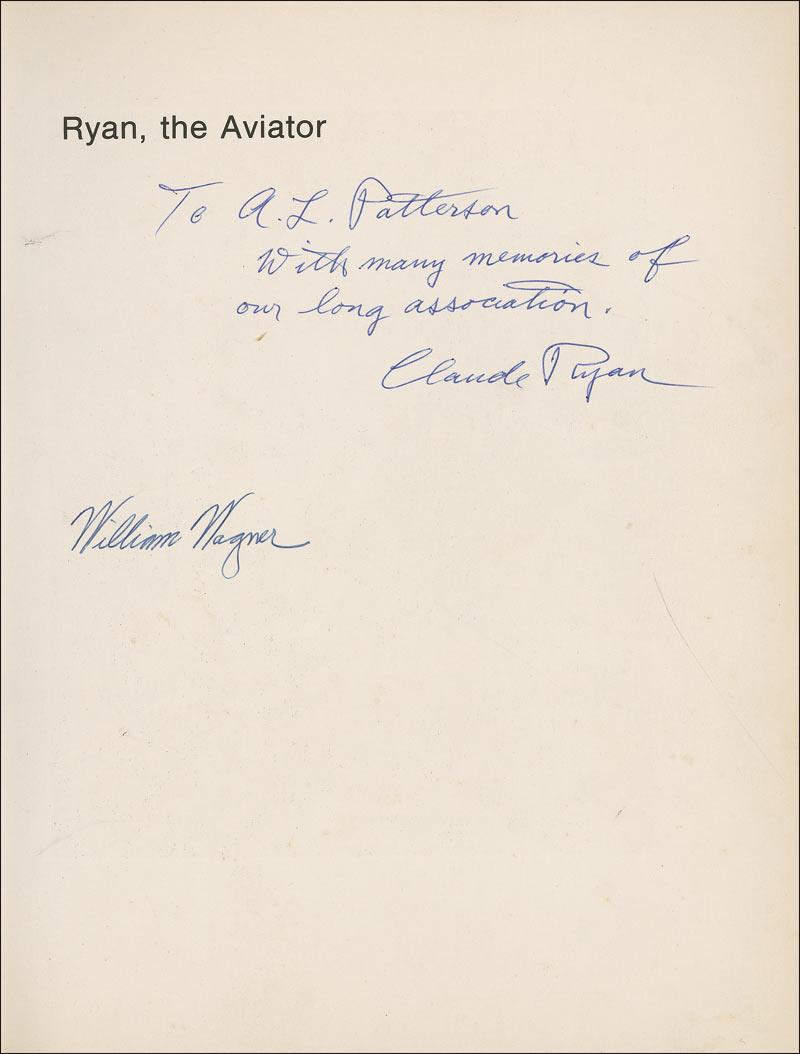 Ryan, the Aviator
To A. L. Patterson
With many memories of
our long association.
Claude Ryan
William Wagner